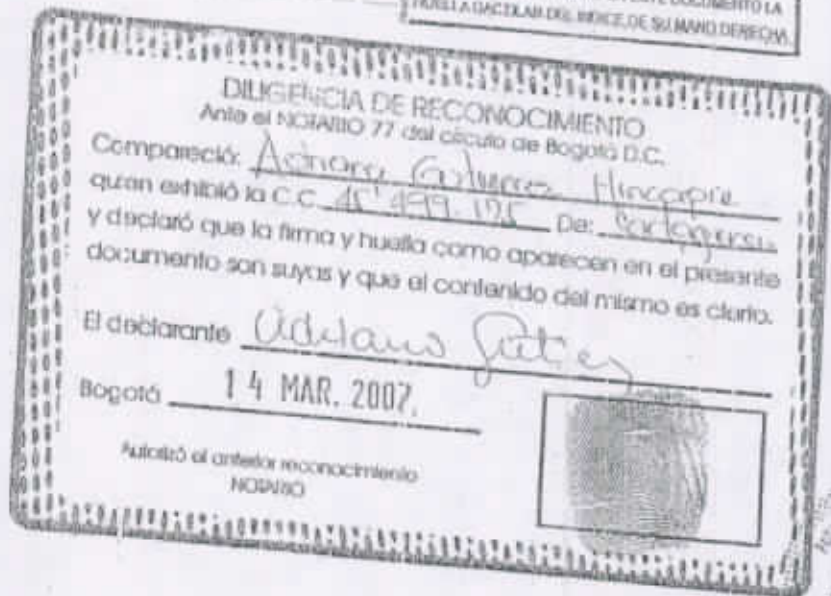 DOCUMENTO LA
HUELLA DACTILAR DEL INDICE DE SU MANO DERECHA.
DILIGENCIA DE RECONOCIMIENTO
Ante el NOTARIO 77 del círculo de Bogotá D.C.
Compareció: Adriana Gutierrez Hincapie
quien exhibió la C.C. 45'499.175 De: Cartagena
y declaró que la firma y huella como aparecen en el presente
documento son suyas y que el contenido del mismo es cierto.
El declarante Adriana Gutiez
Bogotá 14 MAR. 2007.
Autorizó el anterior reconocimiento
NOTARIO